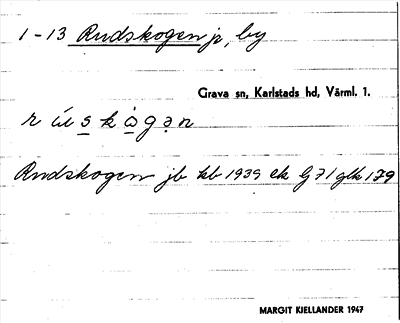 1-13 Rudskogen jp, by
Grava sn, Karlstads hd, Värml. l.
r ú s k ò g ə n
Rudskogen jb kb 1939 ek G 71 glk 179
MARGIT KJELLANDER 1947